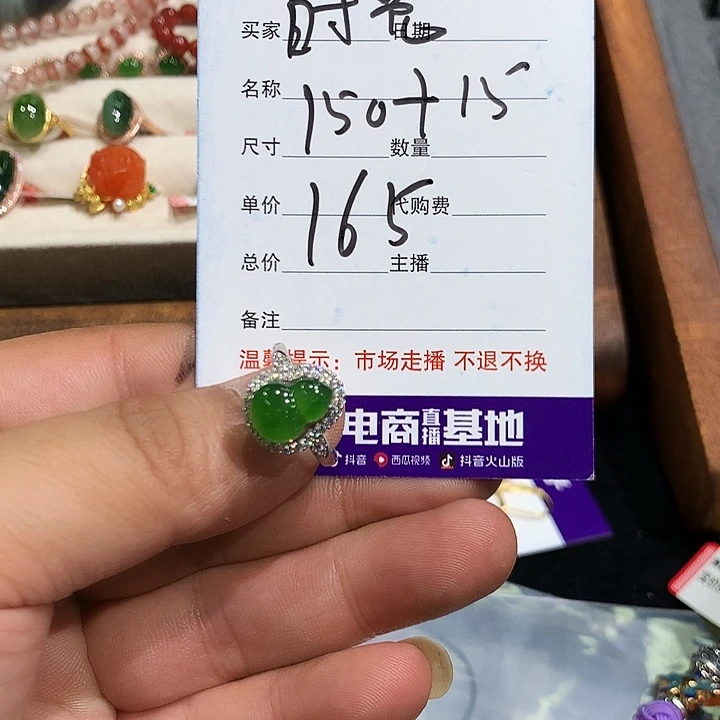 时光
买家 日期
名称
150+15
尺寸 数量
单价 165 代购费
总价 主播
备注
温馨提示：市场走播 不退不换
电商直播基地
抖音 西瓜视频 抖音火山版